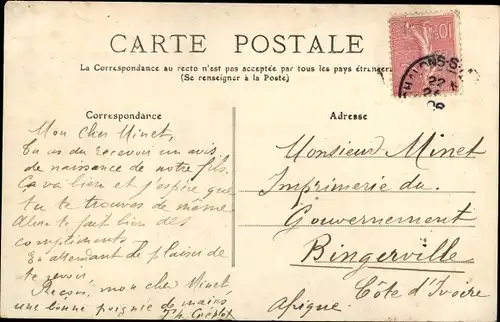 CARTE POSTALE
La Correspondance au recto n'est pas acceptée par tous les pays étrangers
(Se renseigner à la Poste)
Correspondance
Mon cher Minet,
Tu as du recevoir un avis
de naissance de notre fils.
Ça va bien et j'espère que
tu te trouves de même.
te fait bien des
compliments.
En attendant le plaisir de
te revoir,
Reçois, mon cher Minet,
une bonne poignée de mains
Adresse
Monsieur Minet
Imprimerie du
Gouvernement
Bingerville
Côte d'Ivoire
Afrique
10
CHALONS-S
22